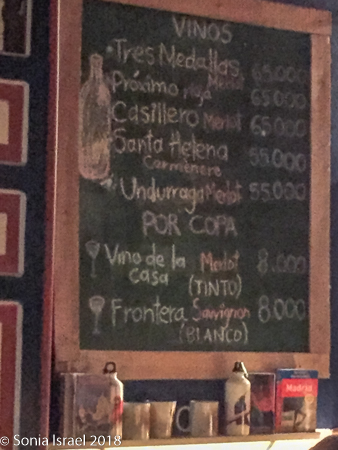 VINOS
Tres Medallas Merlot 65.000
Próximo 65.000
Casillero Merlot 65.000
Santa Helena 55.000
Carménere
Undurraga Merlot 55.000
POR COPA
Vino de la Merlot 8.000
casa (TINTO)
Frontera Sauvignon 8.000
(BLANCO)
Madrid
© Sonia Israel 2018